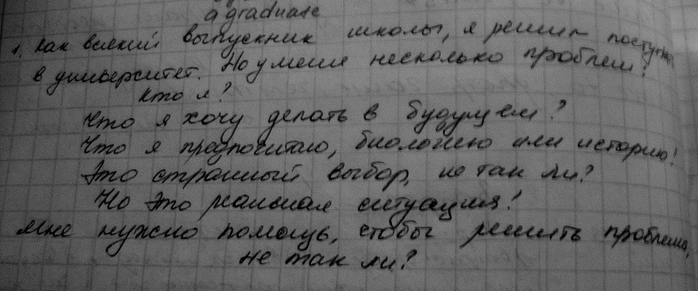 a graduate
1. Как всякий выпускник школы, я решил поступить
в университет. Но у меня несколько проблем!
Кто я?
Что я хочу делать в будущем?
Что я предпочитаю, биологию или историю!
Это странный выбор, не так ли?
Но это реальная ситуация!
Мне нужно помощь, чтобы решить проблемы,
не так ли?